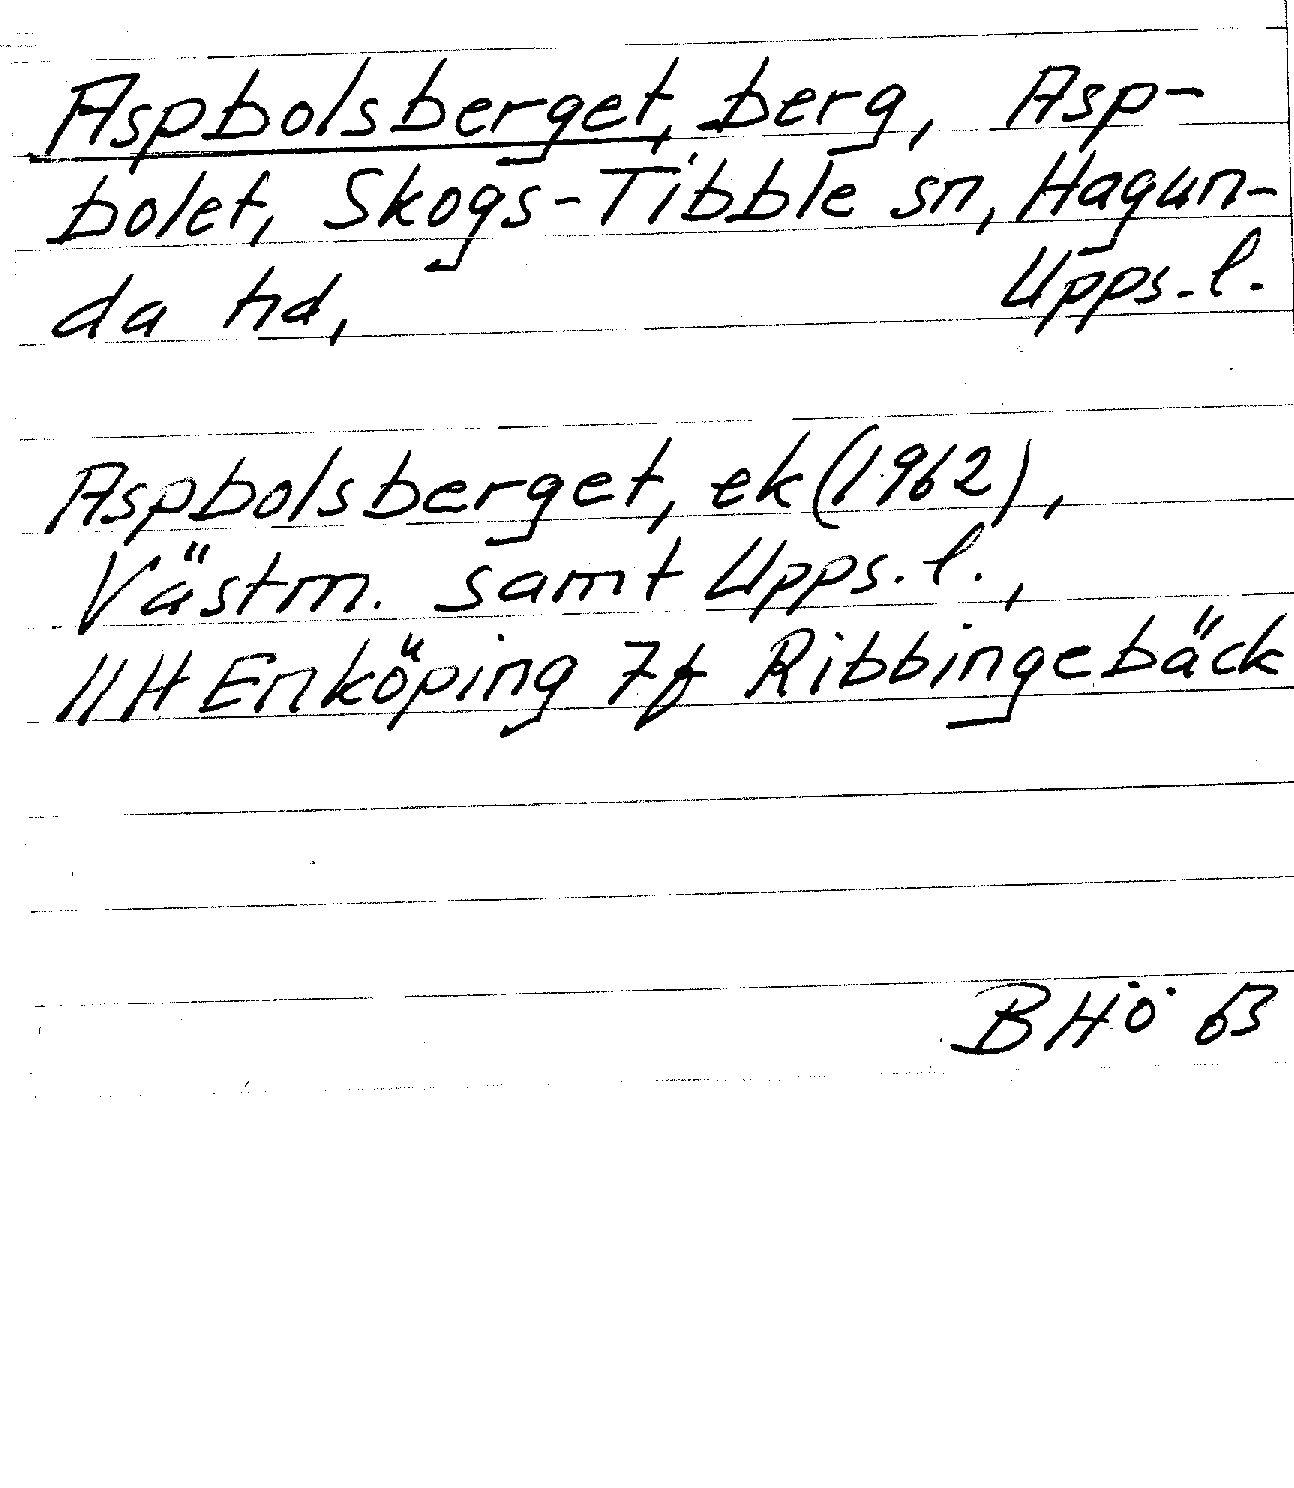 Aspbolsberget, berg, Asp-
bolet, Skogs-Tibble sn, Hagun-
da hd, Upps. l.
Aspbolsberget, ek (1962),
Västm. samt Upps. l.,
11H Enköping 7f Ribbingebäck
BHÖ 63